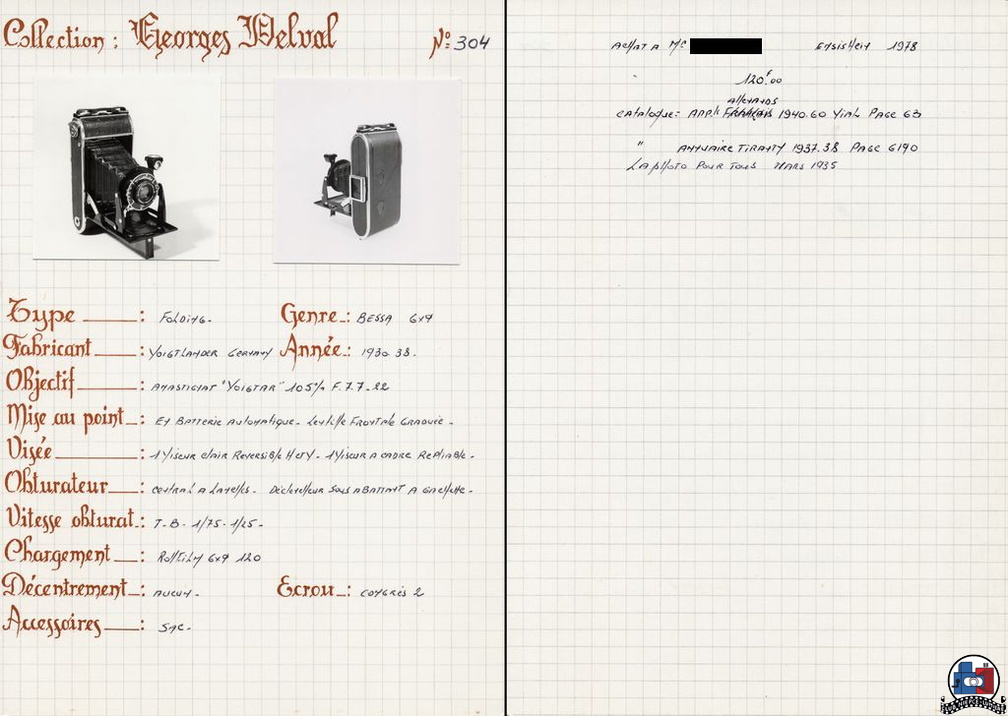 Collection : Georges Delval
Nº 304
Type : Folding.
Genre : BESSA 6x9
Fabricant : VOIGTLANDER GERMANY
Année : 1930.38.
Objectif : ANASTIGMAT "VOIGTAR" 105m/m F.7.7-22
Mise au point : EN BATTERIE AUTOMATIQUE. LENTILLE FRONTALE GRADUÉE.
Visée : 1 VISEUR CLAIR REVERSIBLE H et V. 1 VISEUR A CADRE REPLIABLE.
Obturateur : CENTRAL A LAMELLES. DÉCLENCHEUR SOUS ABATTANT A GACHETTE.
Vitesse obturat. : T. B. 1/75. 1/25.
Chargement : ROLLFILM 6x9 120
Décentrement : AUCUN.
Ecrou : CONGRÈS 2
Accessoires : SAC.
ACHAT A Mr
ENSISHEIM 1978
120F.00
allemands
catalogue: APP. Français 1940.60 Vial Page 63
" ANNUAIRE TIRANTY 1937.38 PAGE G190
La photo Pour Tous MARS 1935